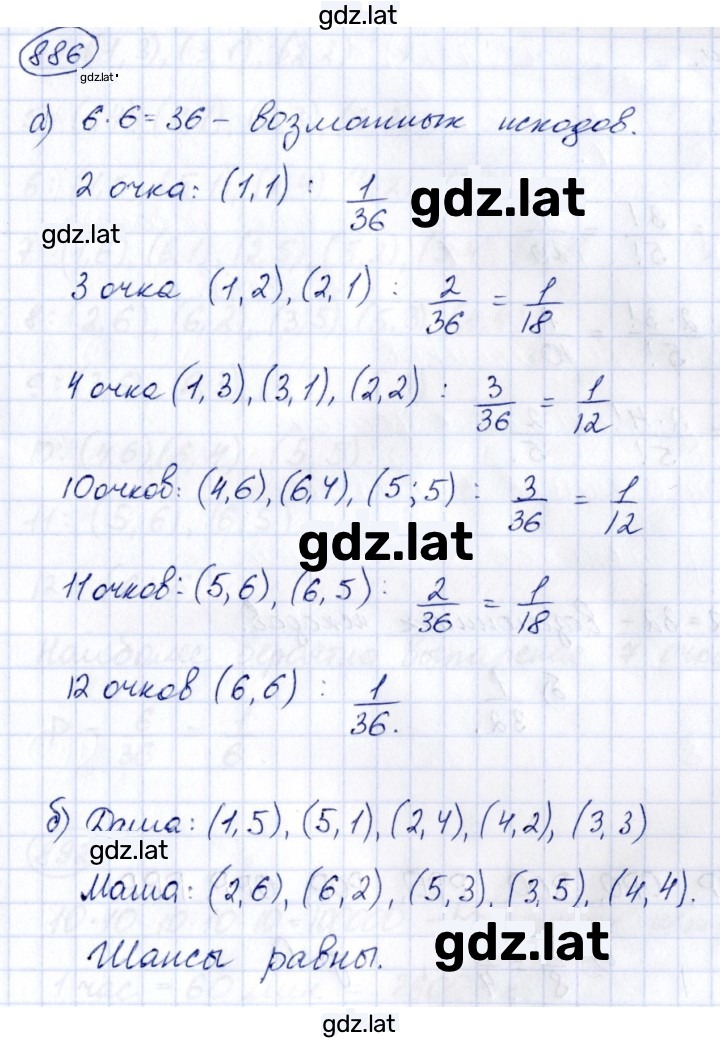 gdz.lat
886
gdz.lat
а) 6·6=36 – возможных исходов.
2 очка: (1,1) : 1/36
gdz.lat
gdz.lat
3 очка (1,2), (2,1) : 2/36 = 1/18
4 очка (1,3), (3,1), (2,2) : 3/36 = 1/12
10 очков: (4,6), (6,4), (5;5) : 3/36 = 1/12
gdz.lat
11 очков: (5,6), (6,5) : 2/36 = 1/18
12 очков (6,6) : 1/36.
б) Даша: (1,5), (5,1), (2,4), (4,2), (3,3)
gdz.lat
Маша: (2,6), (6,2), (5,3), (3,5), (4,4).
gdz.lat
Шансы равны.
gdz.lat